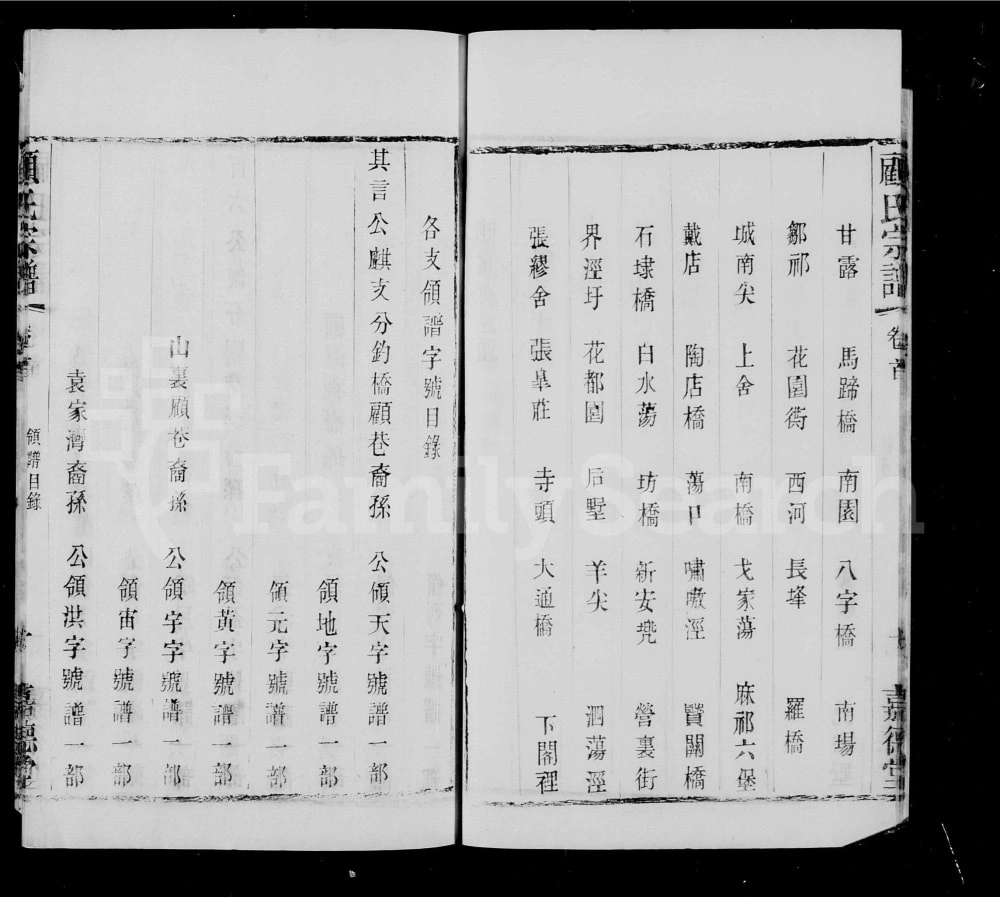 顧氏宗譜 卷首 嘉德堂
甘露 馬蹄橋 南園 八字橋 南場
鄒祁 花園衖 西河 長垾 羅橋
城南尖 上舍 南橋 戈家蕩 麻祁六堡
戴店 陶店橋 蕩口 嘯嗷涇 賢關橋
石埭橋 白水蕩 坊橋 新安兠 營裏街
界涇圩 花都園 后墅 羊尖 泗蕩涇
張繆舍 張臯莊 寺頭 大通橋 下閣裡
各支領譜字號目錄
其言公麒支分釣橋顧巷裔孫 公領天字號譜一部
領地字號譜一部
領元字號譜一部
領黃字號譜一部
山裏顧巷裔孫 公領字字號譜一部
領宙字號譜一部
袁家灣裔孫 公領洪字號譜一部
顧氏宗譜 卷首 領譜目錄 十 嘉德堂
FamilySearch